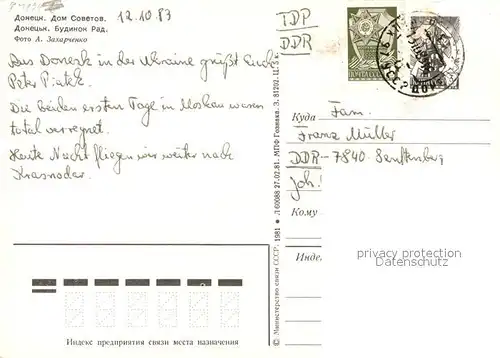 Донецк. Дом Советов.
Донецьк. Будинок Рад.
Фото А. Захарченко
12.10.83
Aus Donezk in der Ukraine grüßt Euch
Peter Piatek.
Die beiden ersten Tage in Moskau waren
total verregnet.
Heute Nacht fliegen wir weiter nach
Krasnodar.
ГДР
DDR
ПОЧТА СССР
Куда
Fam.
Franz Müller
DDR-7840 Senftenberg
Joh.
Кому
Инде
privacy protection
Datenschutz
Индекс предприятия связи места назначения
© Министерство связи СССР. 1981 Л 60088 27.02.81. МПФ Гознака. З. 81202. Ц. 5 к